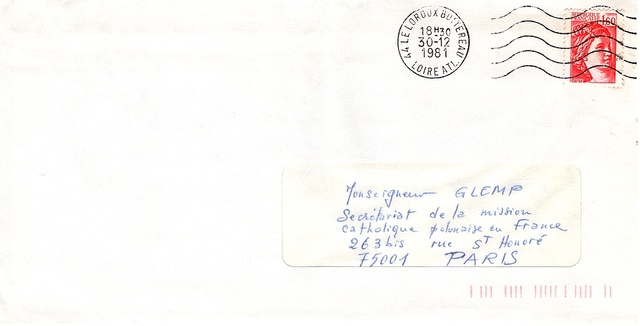 44 LE LOROUX BOTTEREAU
18H30
30-12
1981
LOIRE ATL.
1,60
Monseigneur GLEMP
Secrétariat de la mission
catholique polonaise en France
263 bis rue St Honoré
75001 PARIS